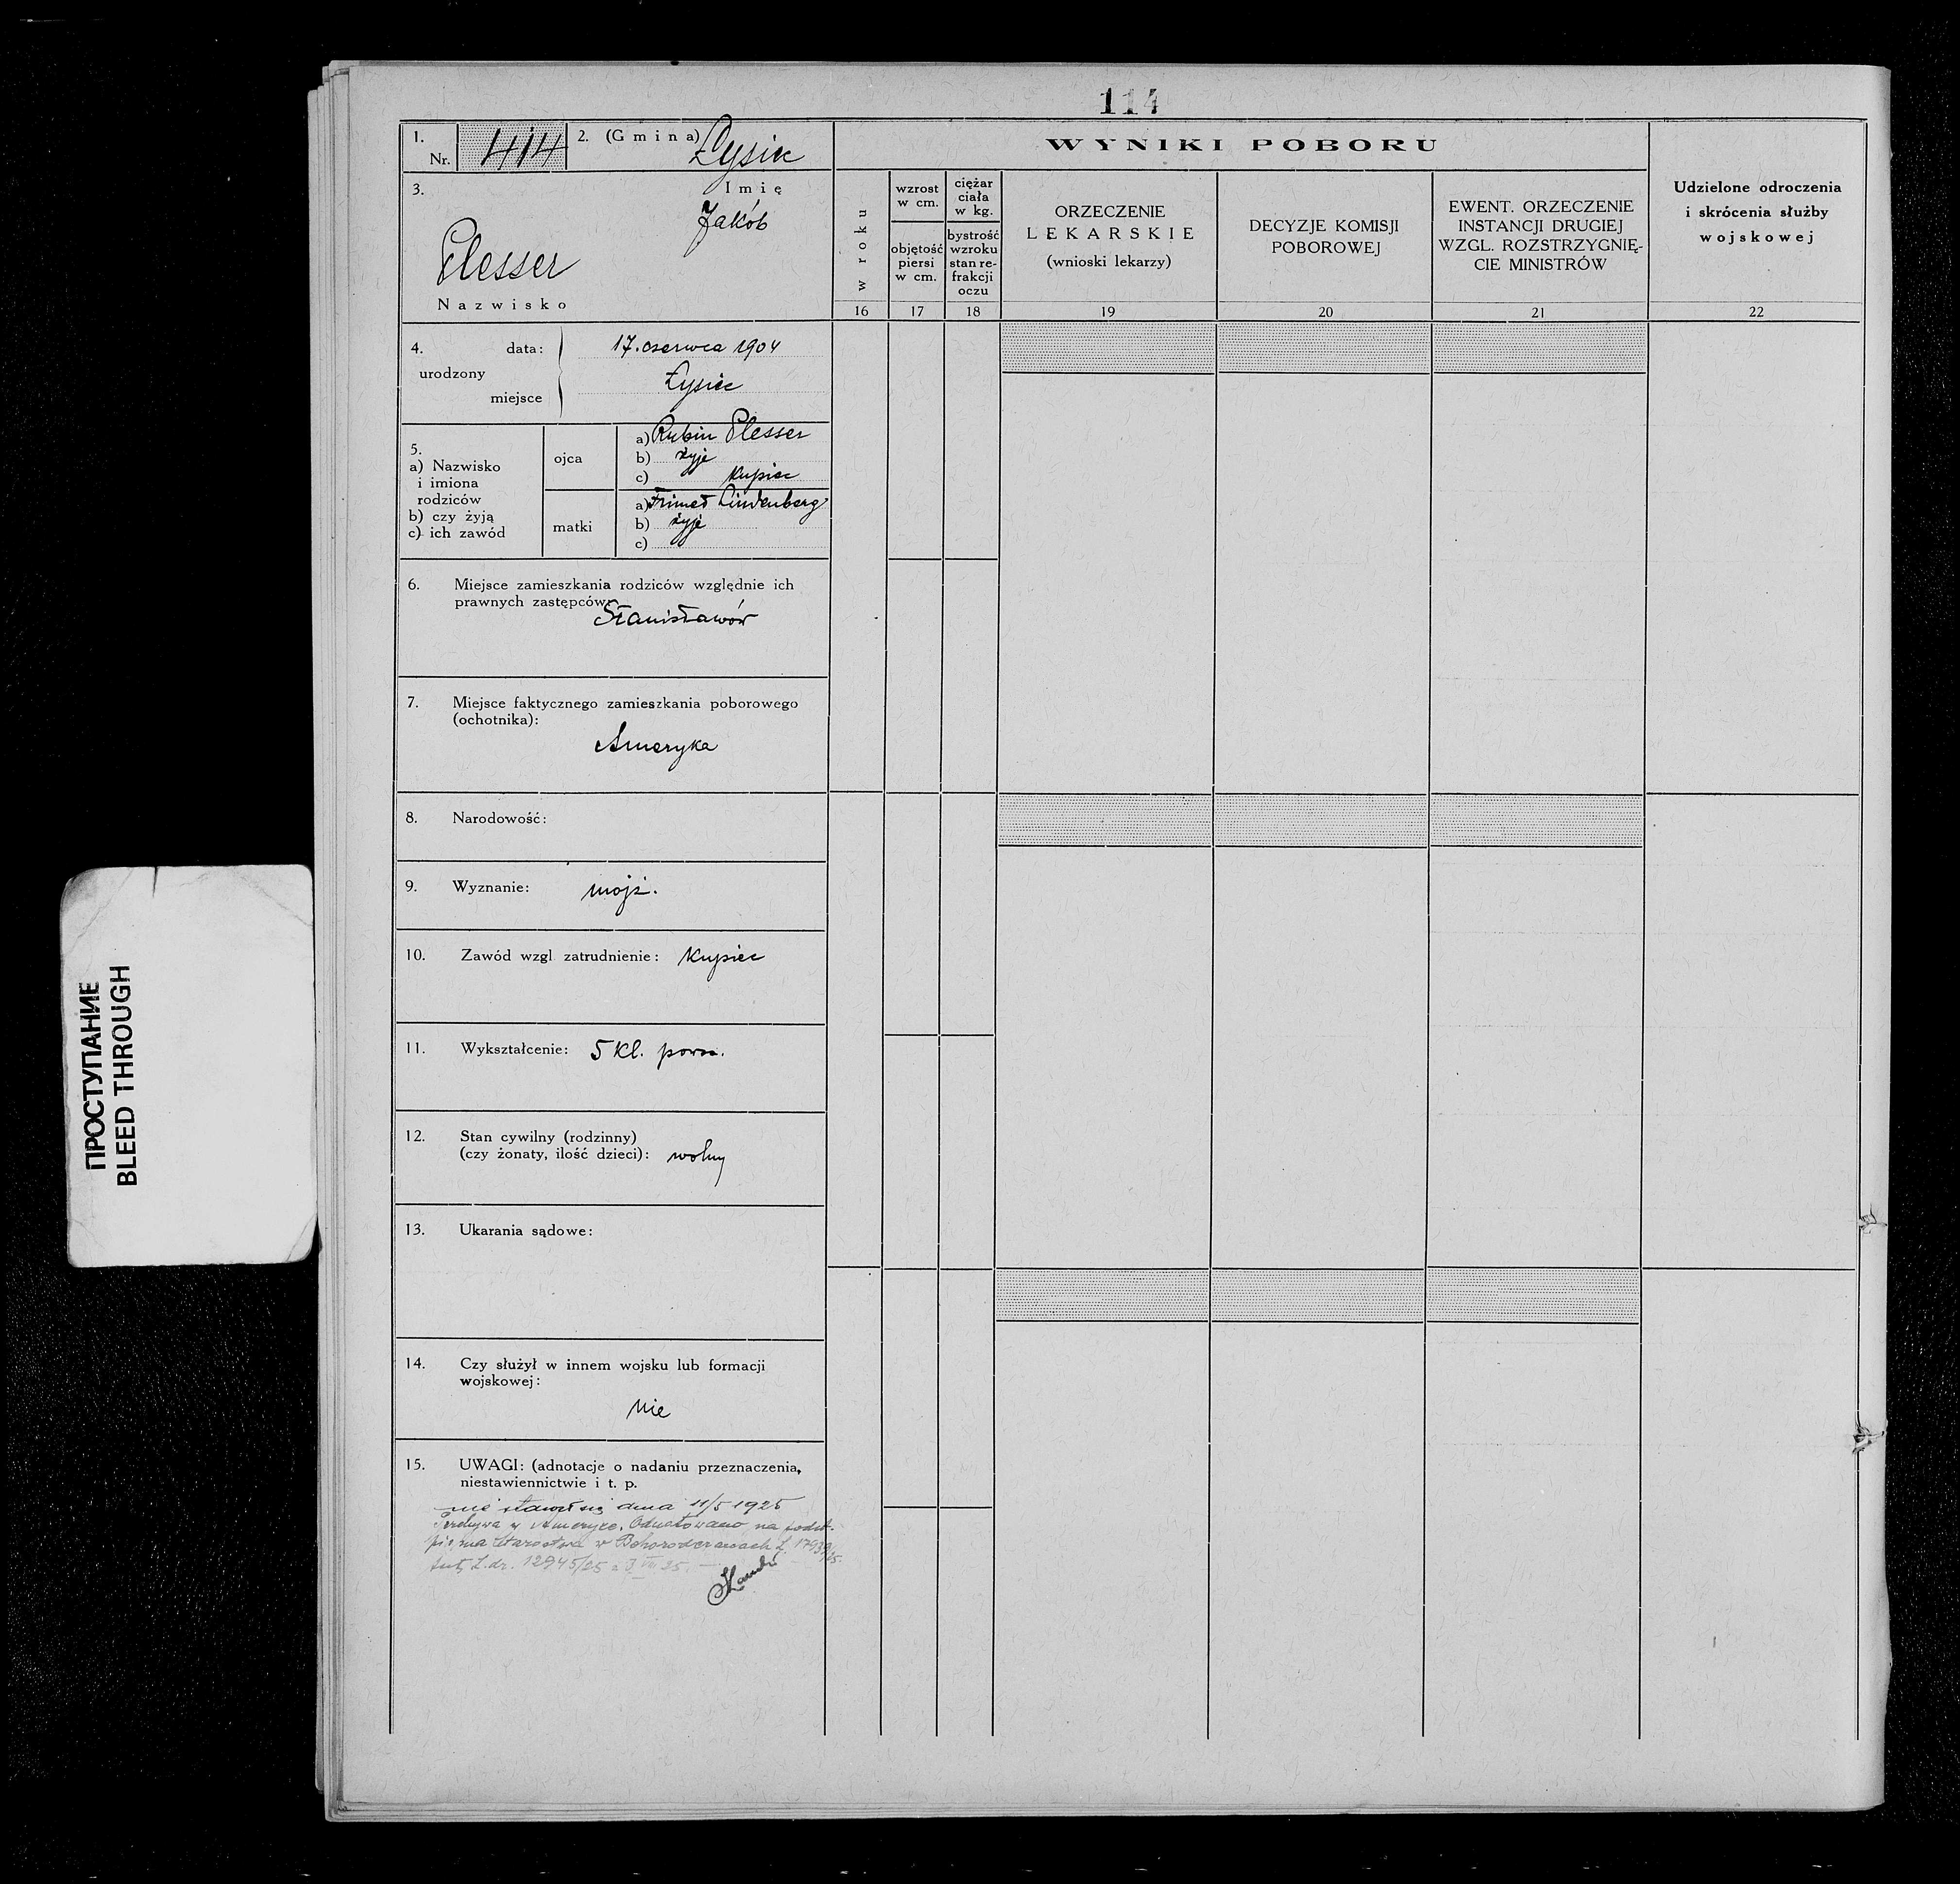 114
1. Nr. 414
2. (Gmina) Łysiec
3. Imię
Jakób
Plesser
Nazwisko
4. urodzony
data: 17. czerwca 1904
miejsce Łysiec
5.
a) Nazwisko
i imiona
rodziców
b) czy żyją
c) ich zawód
ojca
a) Rubin Plesser
b) żyje
c) kupiec
matki
a) Frimet Lindenberg
b) żyje
c)
6. Miejsce zamieszkania rodziców względnie ich
prawnych zastępców:
Stanisławów
7. Miejsce faktycznego zamieszkania poborowego
(ochotnika):
Ameryka
8. Narodowość:
9. Wyznanie: mojż.
10. Zawód wzgl. zatrudnienie: kupiec
11. Wykształcenie: 5 kl. pow.
12. Stan cywilny (rodzinny)
(czy żonaty, ilość dzieci): wolny
13. Ukarania sądowe:
14. Czy służył w innem wojsku lub formacji
wojskowej:
nie
15. UWAGI: (adnotacje o nadaniu przeznaczenia,
niestawiennictwie i t. p.
nie stawił się dnia 11/5 1925
Przebywa w Ameryce. Odnotowano na podst.
pisma Starostwa w Bohorodczanach L. 17939/25
L.dz. 12945/25
WYNIKI POBORU
w roku
16
wzrost
w cm.
objętość
piersi
w cm.
17
ciężar
ciała
w kg.
bystrość
wzroku
stan re-
frakcji
oczu
18
ORZECZENIE
LEKARSKIE
(wnioski lekarzy)
19
DECYZJE KOMISJI
POBOROWEJ
20
EWENT. ORZECZENIE
INSTANCJI DRUGIEJ
WZGL. ROZSTRZYGNIĘ-
CIE MINISTRÓW
21
Udzielone odroczenia
i skrócenia służby
wojskowej
22
ПРОСТУПАНИЕ
BLEED THROUGH